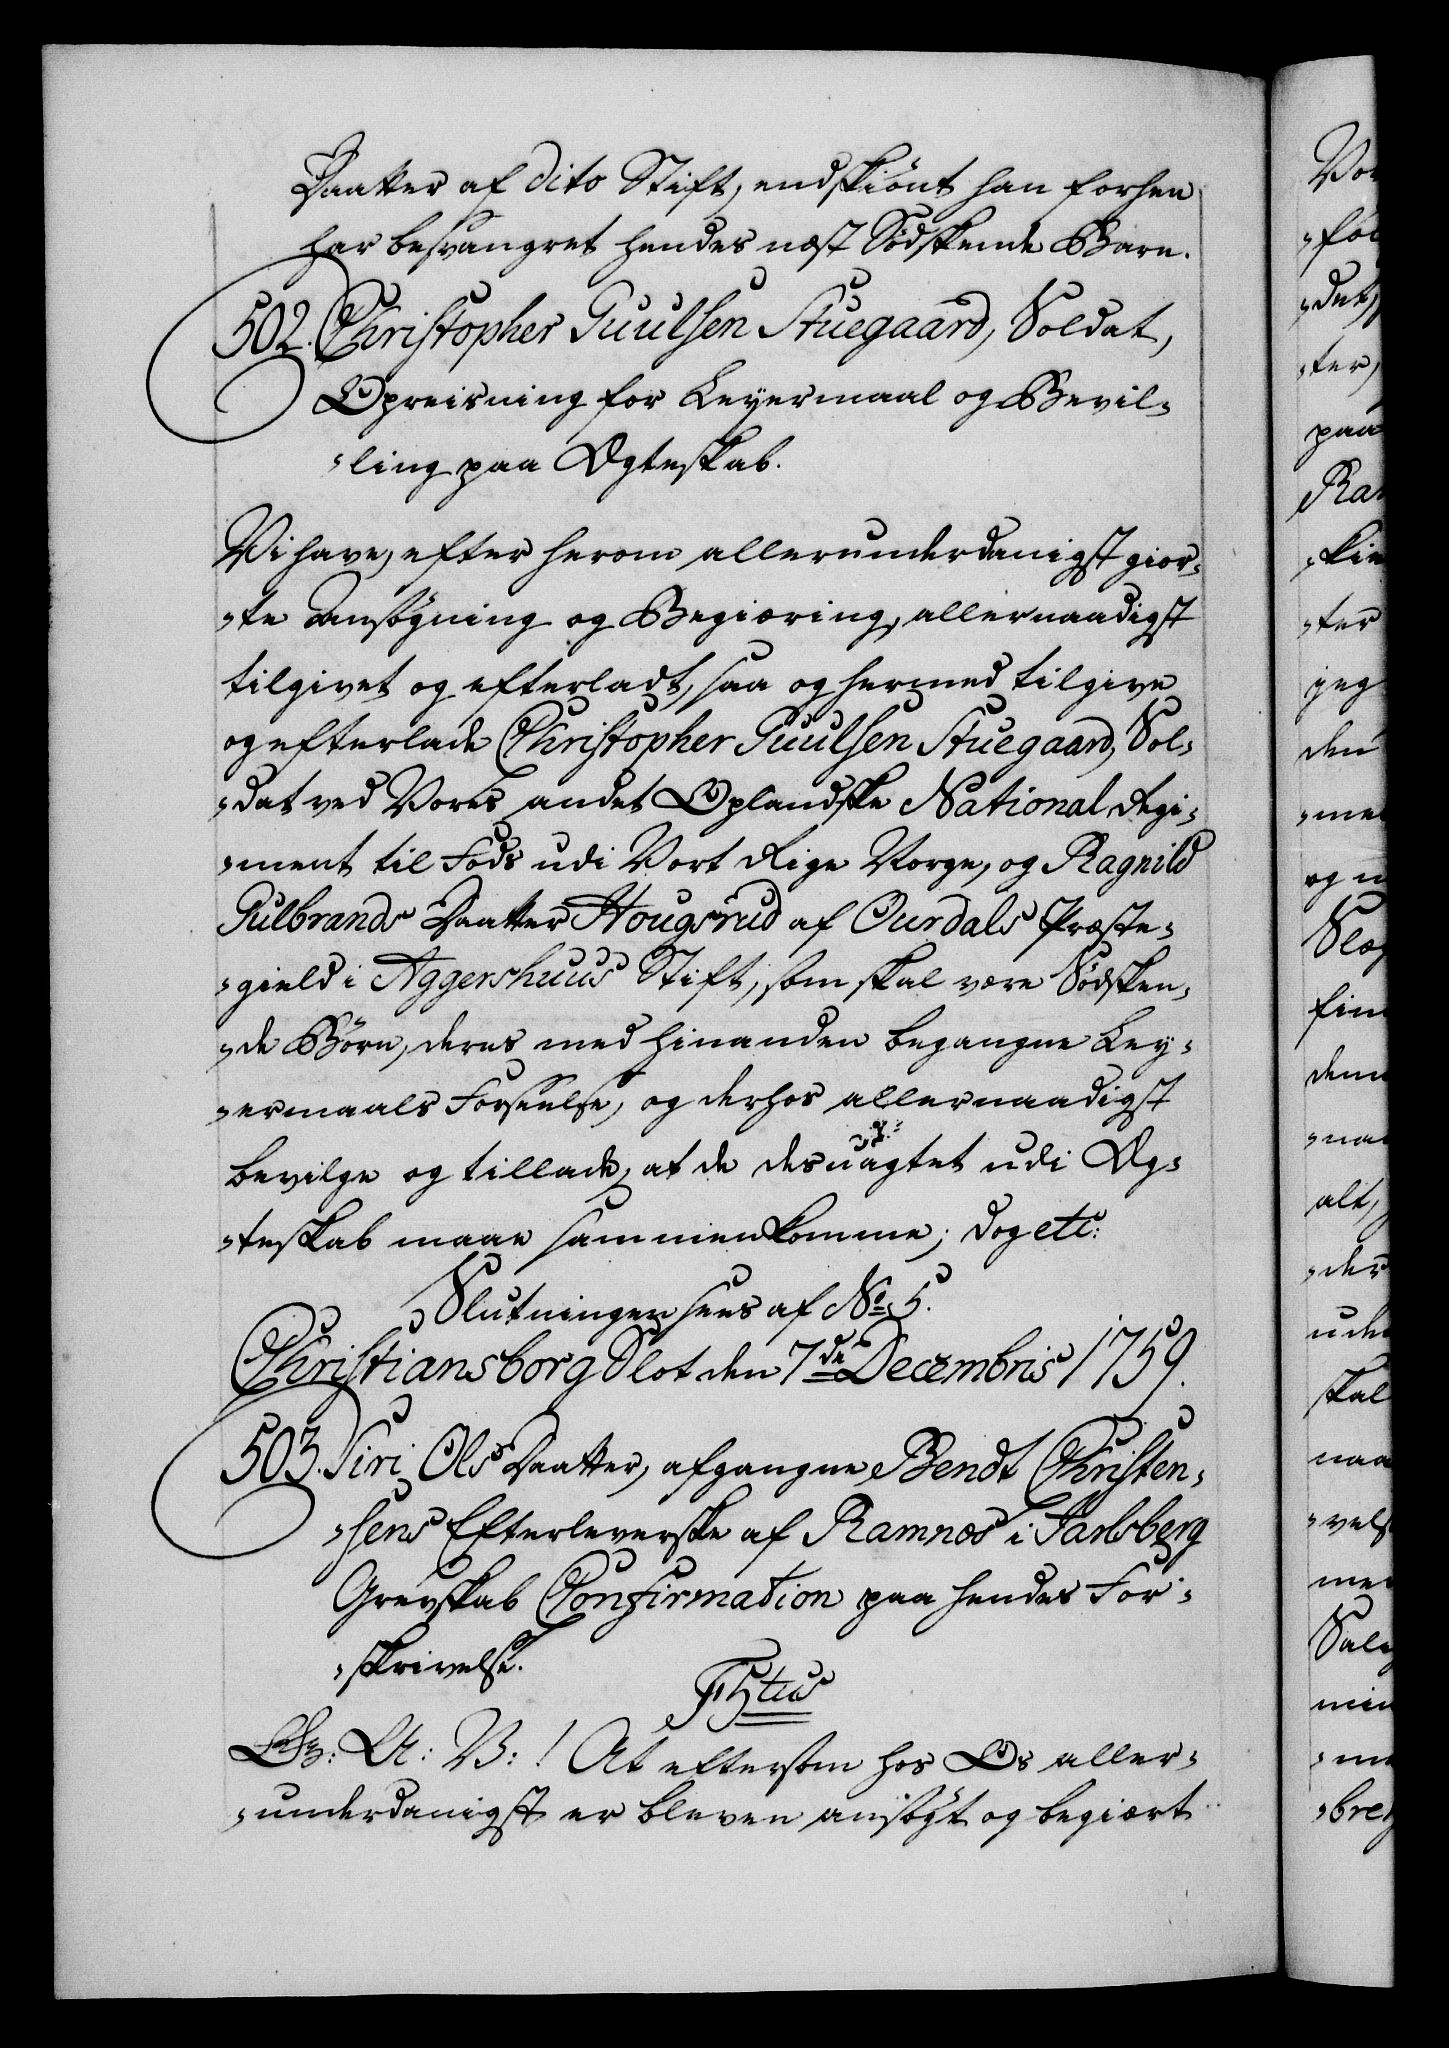 Daatter af dito Stift, endskiönt han forhen
har besvangret hendes næst Södskende Barn.
502. Christopher Guulsen Stuegaard, Soldat,
Opreisning for Leyermaal og Bevil-
-ling paa Ægteskab.
Vi have, efter herom allerunderdanigst gior-
-te Ansögning og Begiæring, allernaadigst
tilgivet og efterladt, saa og hermed tilgive
og efterlade Christopher Guulsen Stuegaard, Sol-
-dat ved Vores andet Oplandske National Regi-
-ment til Fods udi Vort Rige Norge, og Ragnild
Gulbrands Daatter Hougsrud af Ourdals Præste-
-gield i Aggershuus Stift, som skal være Södsken-
-de Börn, deres med hinanden begangne Ley-
-ermaals Forseelse, og derhos allernaadigst
bevilge og tillade, at de desuagtet udi Æg-
-teskab maae sammenkomme; dog etc:
Slutningen sees af No 5.
Christiansborg Slot den 7de Decembris 1759.
503. Siri Ols Daatter, afgangne Bendt Christen-
-sens Efterleverske af Ramnæs i Jarlsberg
Grevskab Confirmation paa hendes For-
-skrivelse.
F 5tus
G: A: V:! At eftersom hos Os aller-
-underdanigst er bleven ansögt og begiært